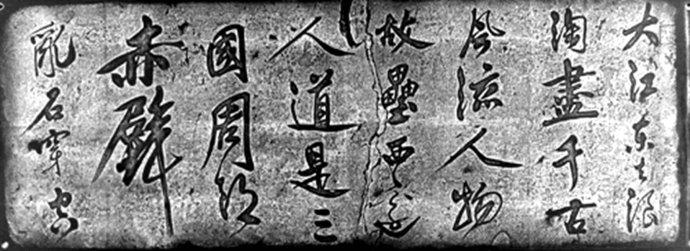 大江东去浪
淘盡千古
風流人物
故壘西邊
人道是三
國周郎
赤壁
亂石穿空